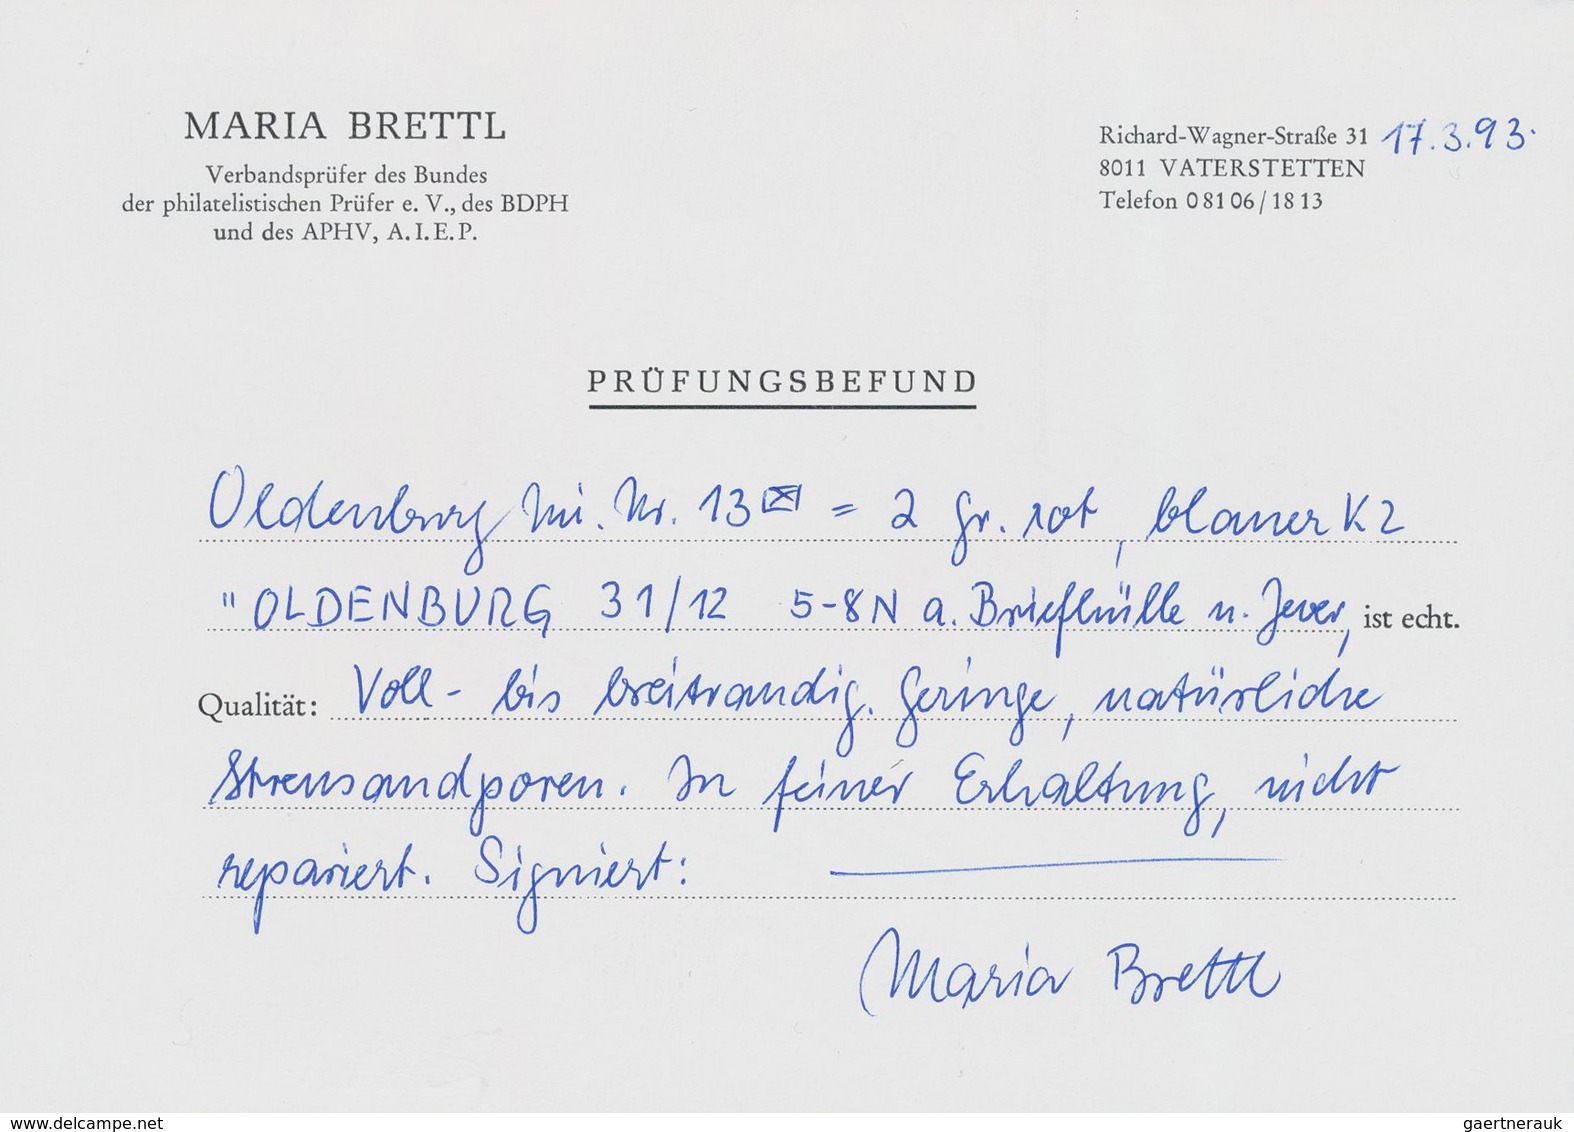 MARIA BRETTL
Verbandsprüfer des Bundes
der philatelistischen Prüfer e. V., des BDPH
und des APHV, A.I.E.P.
Richard-Wagner-Straße 31 17.3.93.
8011 VATERSTETTEN
Telefon 08106/1813
PRÜFUNGSBEFUND
Oldenburg Mi. Nr. 13 ✉ = 2 Gr. rot, blauer K 2
"OLDENBURG 31/12 5-8N a. Briefhülle n. Jever, ist echt.
Qualität: Voll- bis breitrandig. Geringe, natürliche
Streusandporen. In feiner Erhaltung, nicht
repariert. Signiert: —
Maria Brettl
www.delcampe.net
gaertnerauk